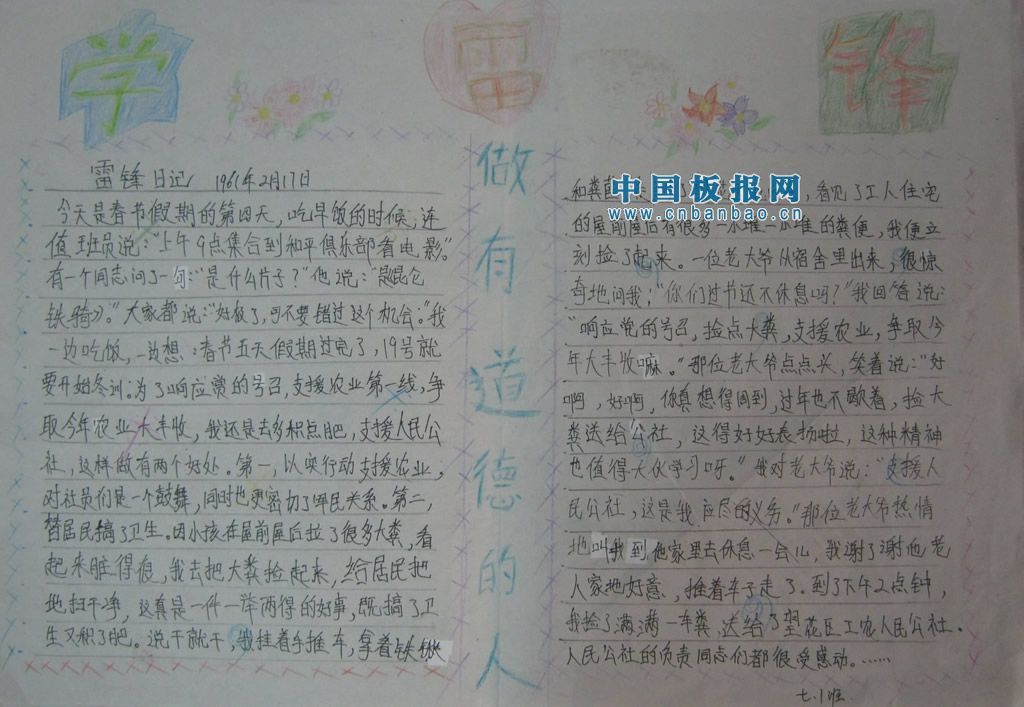 学雷锋
做有道德的人
雷锋日记 1961年2月17日
今天是春节假期的第四天,吃早饭的时候,连
值班员说:“上午9点集合到和平俱乐部看电影。”
有一个同志问了一句:“是什么片子?”他说:“是昆仑
铁骑》。”大家都说:“好极了,可不要错过这个机会。”我
一边吃饭,一边想:春节五天假期过完了,19号就
要开始冬训。为了响应党的号召,支援农业第一线,争
取今年农业大丰收,我还是去多积点肥,支援人民公
社,这样做有两个好处。第一,以实行动支援农业,
对社员们是一个鼓舞,同时也更密切了军民关系。第二,
替居民搞了卫生。因小孩在屋前屋后拉了很多大粪,看
起来脏得很,我去把大粪捡起来,给居民把
地扫干净,这真是一件一举两得的好事,既搞了卫
生又积了肥。说干就干,我推着手推车,拿着铁锹
和粪
中国板报网
www.cnbanbao.cn
看见了工人住宅
的屋前屋后有很多一小堆一小堆的粪便,我便立
刻捡了起来。一位老大爷从宿舍里出来,很惊
奇地问我:“你们过节还不休息吗?”我回答说:
“响应党的号召,捡点大粪,支援农业,争取今
年大丰收嘛。”那位老大爷点点头,笑着说:“好
啊,好啊,你真想得周到,过年也不歇着,捡大
粪送给公社,这得好好表扬啦,这种精神
也值得大伙学习呀。”我对老大爷说:“支援人
民公社,这是我应尽的义务。”那位老大爷热情
地叫我到他家里去休息一会儿,我谢了谢他老
人家地好意,推着车子走了。到了下午2点钟,
我捡了满满一车粪,送给了望花区工农人民公社。
人民公社的负责同志们都很受感动。……
七.1班